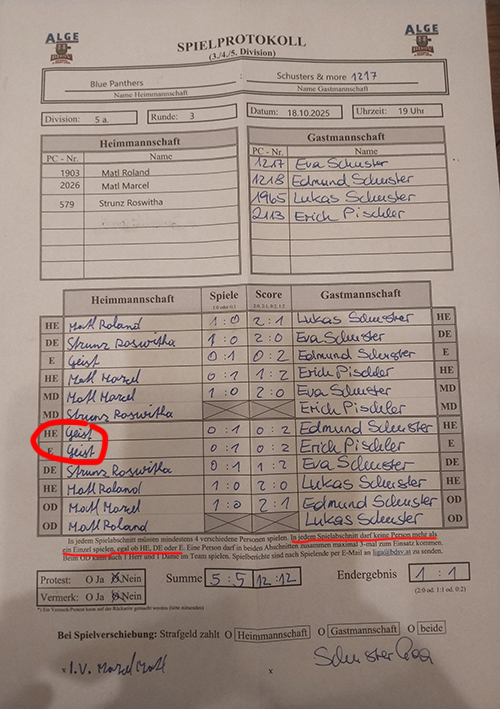 ALGE
ALGE
SPIELPROTOKOLL
(3./4./5. Division)
Blue Panthers : Schusters & more 1217
Name Heimmannschaft Name Gastmannschaft
Division: 5 a. Runde: 3 Datum: 18.10.2025 Uhrzeit: 19 Uhr
Heimmannschaft Gastmannschaft
PC - Nr. Name PC - Nr. Name
1903 Matl Roland 1217 Eva Schuster
2026 Matl Marcel 1218 Edmund Schuster
579 Strunz Roswitha 1965 Lukas Schuster
2113 Erich Pischler
Heimmannschaft Spiele Score Gastmannschaft
1:0 oder 0:1 2:0, 2:1, 0:2, 1:2
HE Matl Roland 1:0 2:1 Lukas Schuster HE
DE Strunz Roswitha 1:0 2:0 Eva Schuster DE
E Geist 0:1 0:2 Edmund Schuster E
HE Matl Marcel 0:1 1:2 Erich Pischler HE
MD Matl Marcel 1:0 2:0 Eva Schuster MD
MD Strunz Roswitha Erich Pischler MD
HE Geist 0:1 0:2 Edmund Schuster HE
E Geist 0:1 0:2 Erich Pischler E
DE Strunz Roswitha 0:1 1:2 Eva Schuster DE
HE Matl Roland 1:0 2:0 Lukas Schuster HE
OD Matl Marcel 1:0 2:1 Edmund Schuster OD
OD Matl Roland Lukas Schuster OD
In jedem Spielabschnitt müssen mindestens 4 verschiedene Personen spielen. In jedem Spielabschnitt darf keine Person mehr als
ein Einzel spielen, egal ob HE, DE oder E. Eine Person darf in beiden Abschnitten zusammen maximal 3-mal zum Einsatz kommen.
Beim OD kann auch 1 Herr und 1 Dame im Team spielen. Spielberichte sind nach Spielende per E-Mail an liga@bdsv.at zu senden.
Protest: O Ja O Nein Summe 5:5 12:12 Endergebnis 1:1
Vermerk: O Ja O Nein (2:0 od. 1:1 od. 0:2)
Bei Spielverschiebung: Strafgeld zahlt O Heimmannschaft O Gastmannschaft O beide
x I.V. Marcel Matl x Schuster Eva